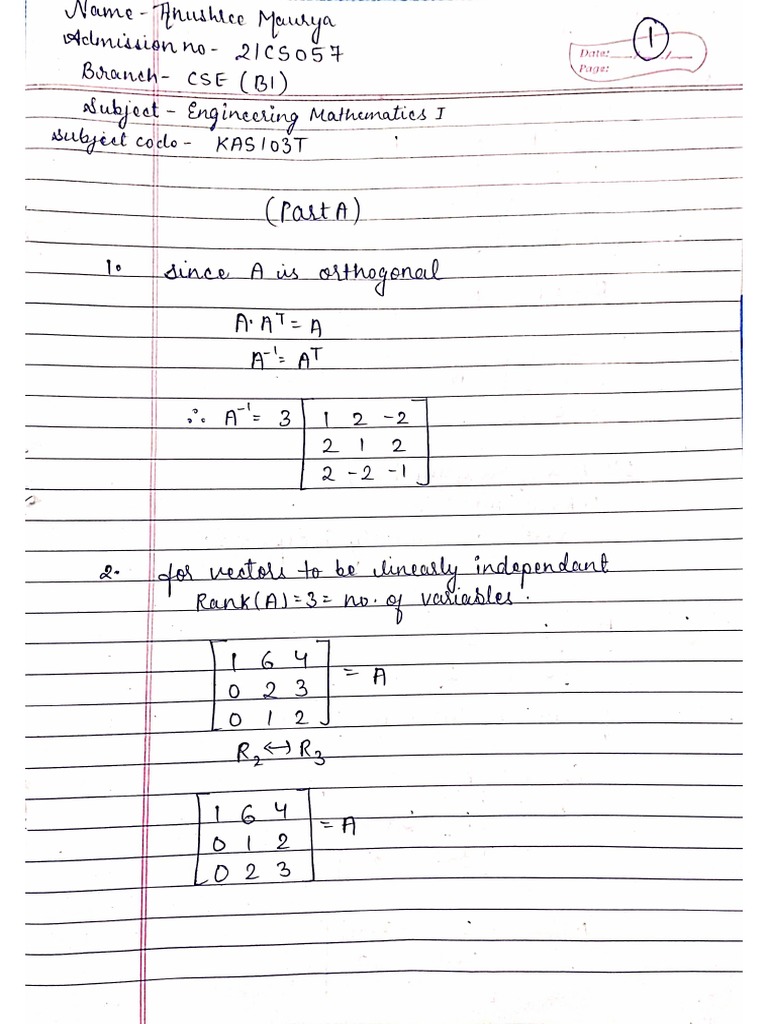 Name - Anushree Maurya
Admission no - 21CS057
Branch - CSE (B1)
Subject - Engineering Mathematics I
Subject code - KAS103T
Date: ___/___/___
Page: 1
(Part A)
1. Since A is orthogonal
A·Aᵀ = A
A⁻¹ = Aᵀ
∴ A⁻¹ = 3 [1 2 -2
2 1 2
2 -2 -1]
2. for vectors to be linearly independant
Rank(A) = 3 = no. of variables.
[1 6 4
0 2 3
0 1 2] = A
R₂ ↔ R₃
[1 6 4
0 1 2
0 2 3] = A